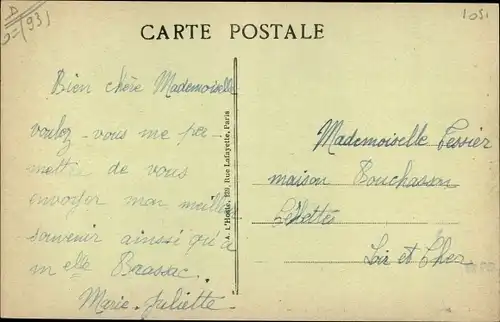 D
(93)
1051
CARTE POSTALE
Bien chère Mademoiselle
voulez-vous me per-
mettre de vous
envoyer mon meilleur
souvenir ainsi qu'à
melle Brassac.
Marie-Juliette
A. L'Hoste, 139, Rue Lafayette, Paris
Mademoiselle Tessier
maison Bouchasson
Cellettes
Loir et Cher